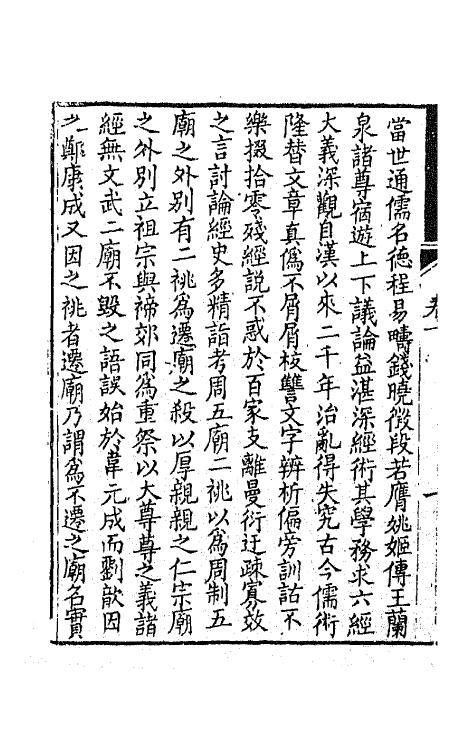 當世通儒名德程易疇錢曉徵段若膺姚姬傳王蘭
泉諸尊宿遊上下議論益湛深經術其學務求六經
大義深觀自漢以來二千年治亂得失究古今儒術
隆替文章真偽不屑屑校讐文字辨析偏旁訓詁不
樂掇拾零殘經說不惑於百家支離曼衍迂疎寡效
之言討論經史多精詣考周五廟二祧以爲周制五
廟之外別有二祧爲遷廟之殺以厚親親之仁宗廟
之外別立祖宗與禘郊同爲重祭以大尊尊之義諸
經無文武二廟不毀之語誤始於韋元成而劉歆因
之鄭康成又因之祧者遷廟乃謂爲不遷之廟名實
卷一
一